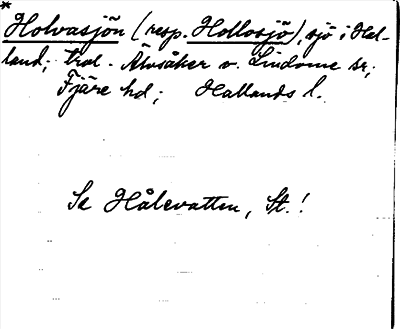 * Holvasjön (resp. Hollosjö), sjö i Hal-
land; trol. Älvsåker o. Lindome sn;
Fjäre hd; Hallands l.
Se Hålevatten, St.!